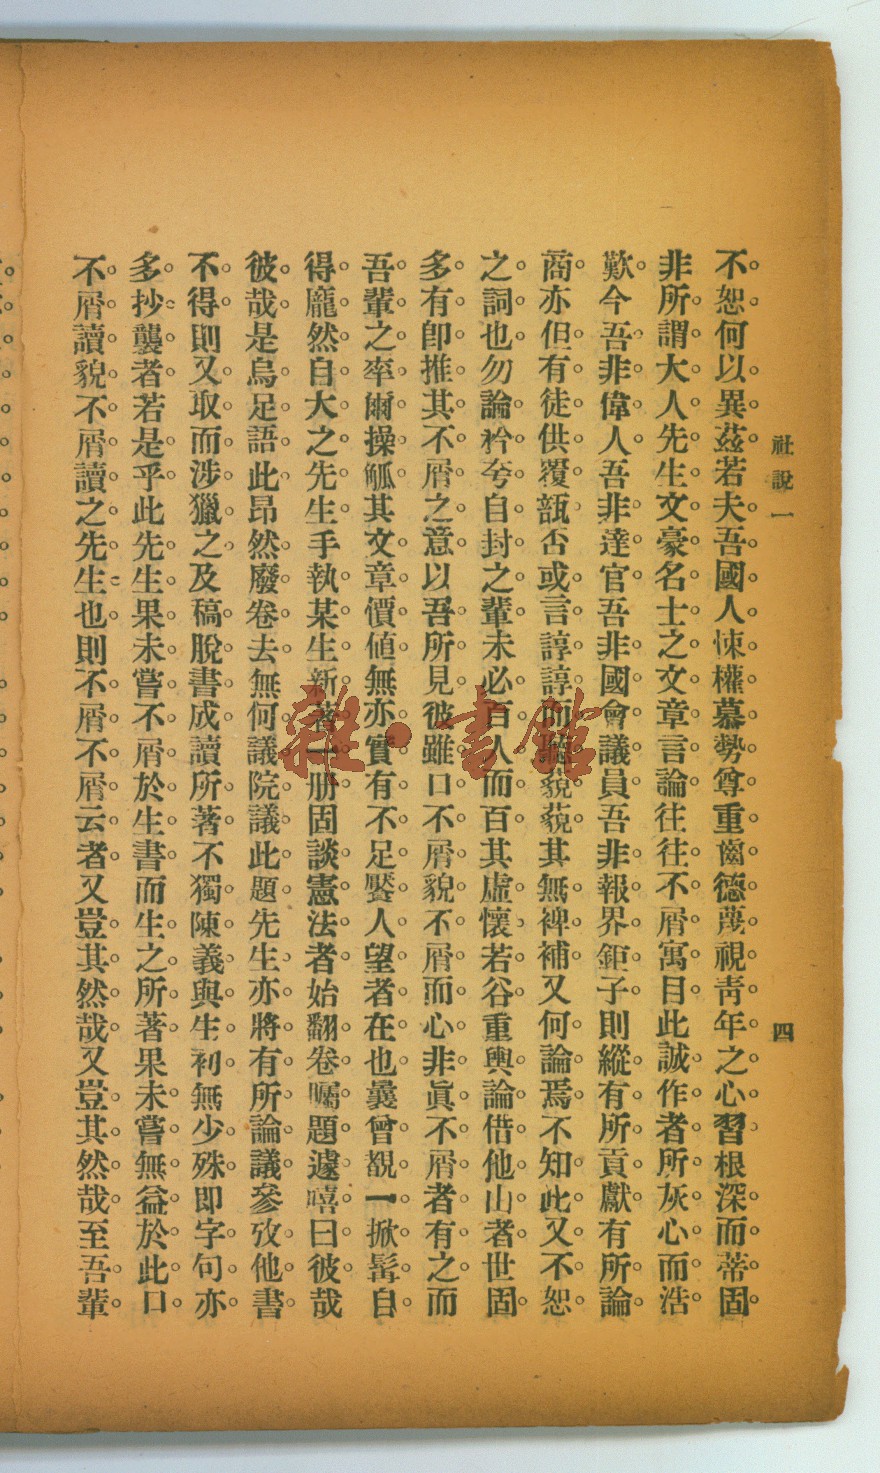 社說一
四
不恕何以異茲若夫吾國人悚權慕勢尊重齒德蔑視靑年之心習根深而蒂固
非所謂大人先生文豪名士之文章言論往往不屑寓目此誠作者所灰心而浩
歎今吾非偉人吾非達官吾非國會議員吾非報界鉅子則縱有所貢獻有所論
商亦但有徒供覆瓿否或言諄諄而聽藐藐其無裨補又何論焉不知此又不恕
之詞也勿論矜夸自封之輩未必百人而百其虛懷若谷重輿論借他山者世固
多有卽推其不屑之意以吾所見彼雖口不屑貌不屑而心非眞不屑者有之而
吾輩之率爾操觚其文章價値無亦實有不足饜人望者在也曩曾覩一掀髯自
得龐然自大之先生手執某生新著一册固談憲法者始翻卷矚題遽嘻曰彼哉
彼哉是烏足語此昂然廢卷去無何議院議此題先生亦將有所論議參攷他書
不得則又取而涉獵之及稿脫書成讀所著不獨陳義與生初無少殊即字句亦
多抄襲者若是乎此先生果未嘗不屑於生書而生之所著果未嘗無益於此口
不屑讀貌不屑讀之先生也則不屑不屑云者又豈其然哉又豈其然哉至吾輩
雜·書館